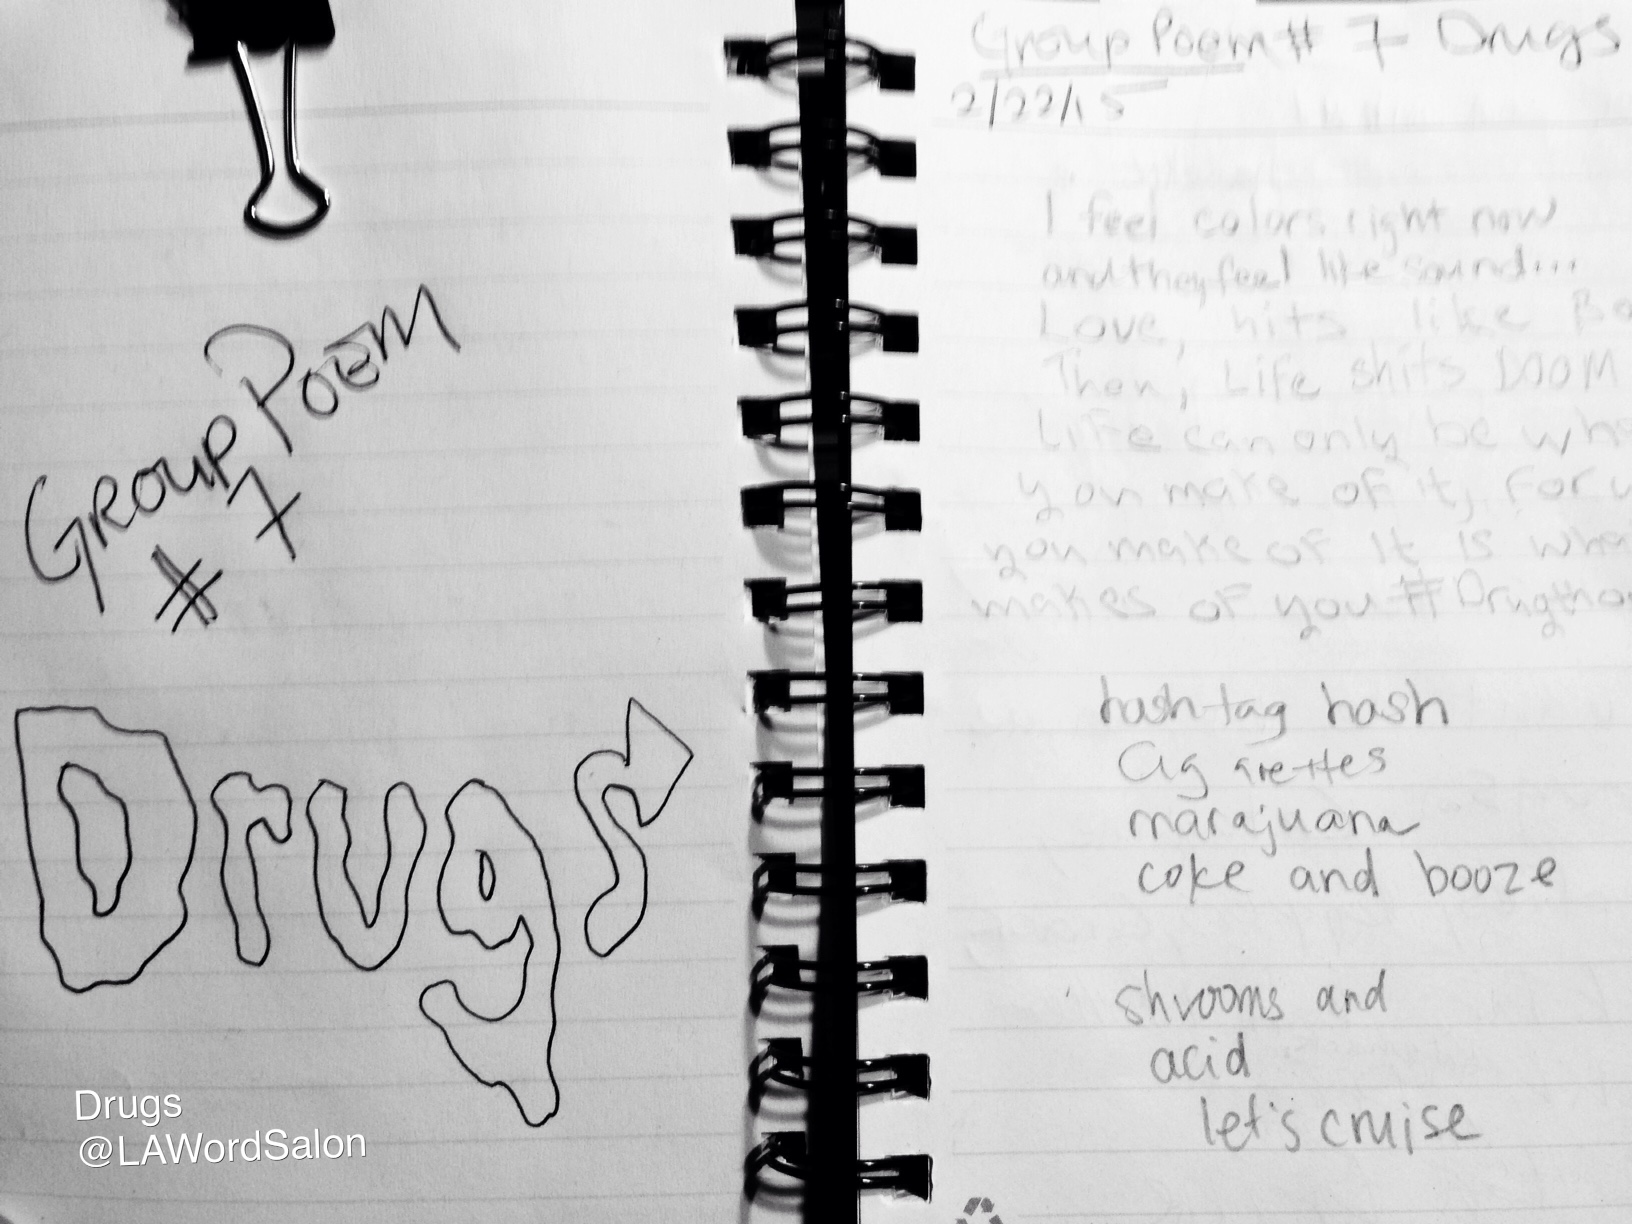 Group Poem
# 7
Drugs
Drugs
@LAWordSalon
Group Poem # 7 Drugs
2/22/15
I feel colors right now
and they feel like sound...
Love, hits like
Then, Life shits DOOM
Life can only be
you make of it, For
you make of it is
makes of you #
hash-tag hash
Cigarettes
marajuana
coke and booze
shrooms and
acid
let's cruise